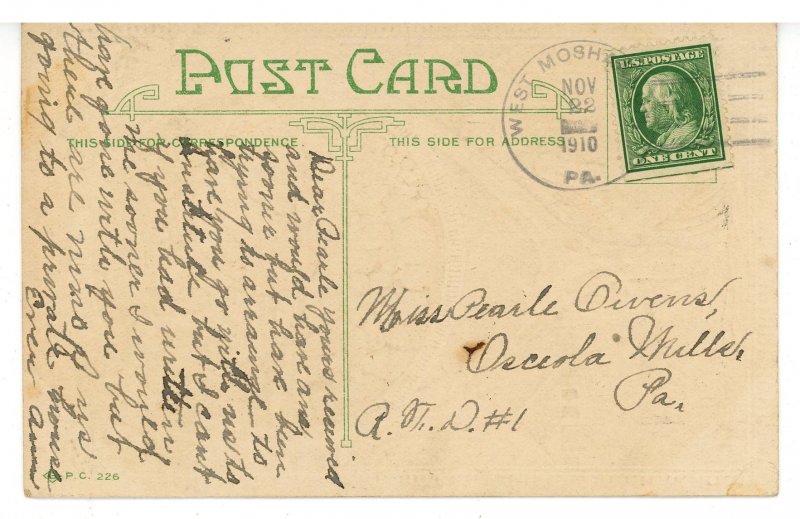 POST CARD
THIS SIDE FOR CORRESPONDENCE.
THIS SIDE FOR ADDRESS
WEST MOSH
NOV
22
1910
PA.
U.S. POSTAGE
ONE CENT
Dear Pearle yours received
and would have ans
sooner but have been
trying to arrange to
have you go with us to
Institute but I cant
if you had written
me sooner I would
have gone with you but
there are nine of us
going to a private house
Ever
Miss Pearle Owens,
Osceola Mills,
Pa,
R. F. D. #1
P.C. 226